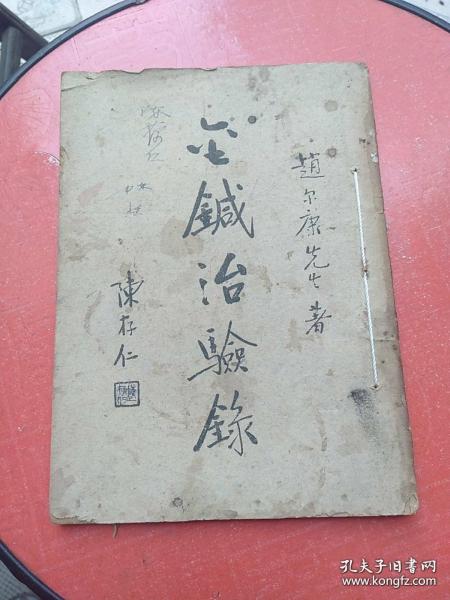 趙尔康先生著
金鍼治驗錄
陳存仁
孔夫子旧书网
www.kongfz.com